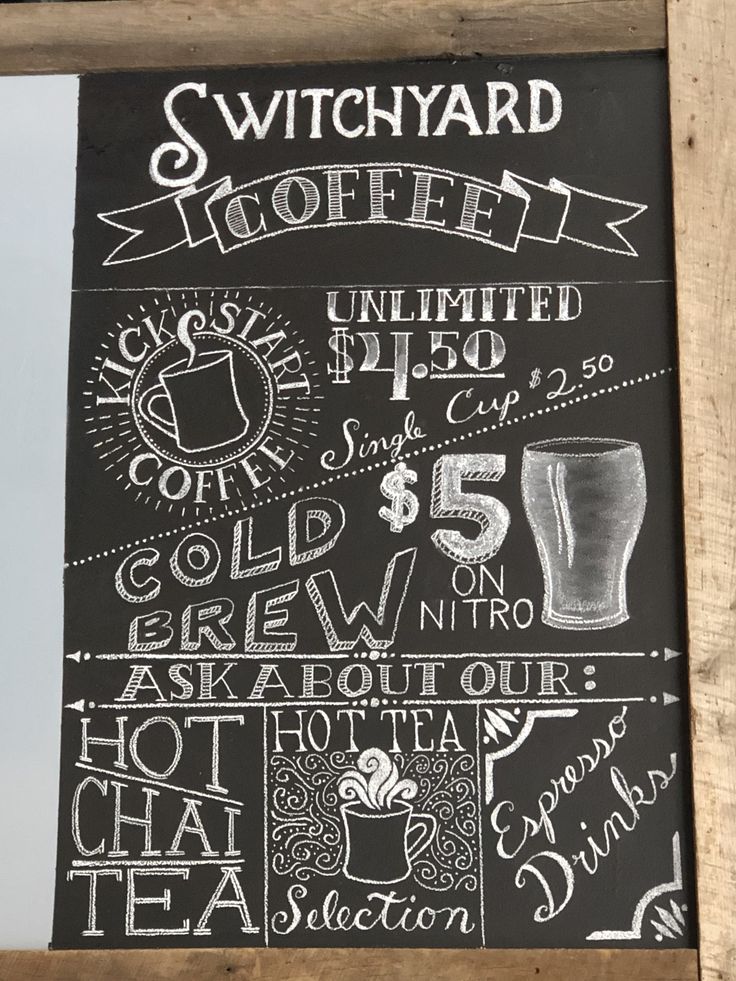 SWITCHYARD
COFFEE
KICK START
COFFEE
UNLIMITED
$4.50
Single Cup $2.50
COLD
BREW
$5
ON
NITRO
ASK ABOUT OUR:
HOT
CHAI
TEA
HOT TEA
Selection
Espresso
Drinks